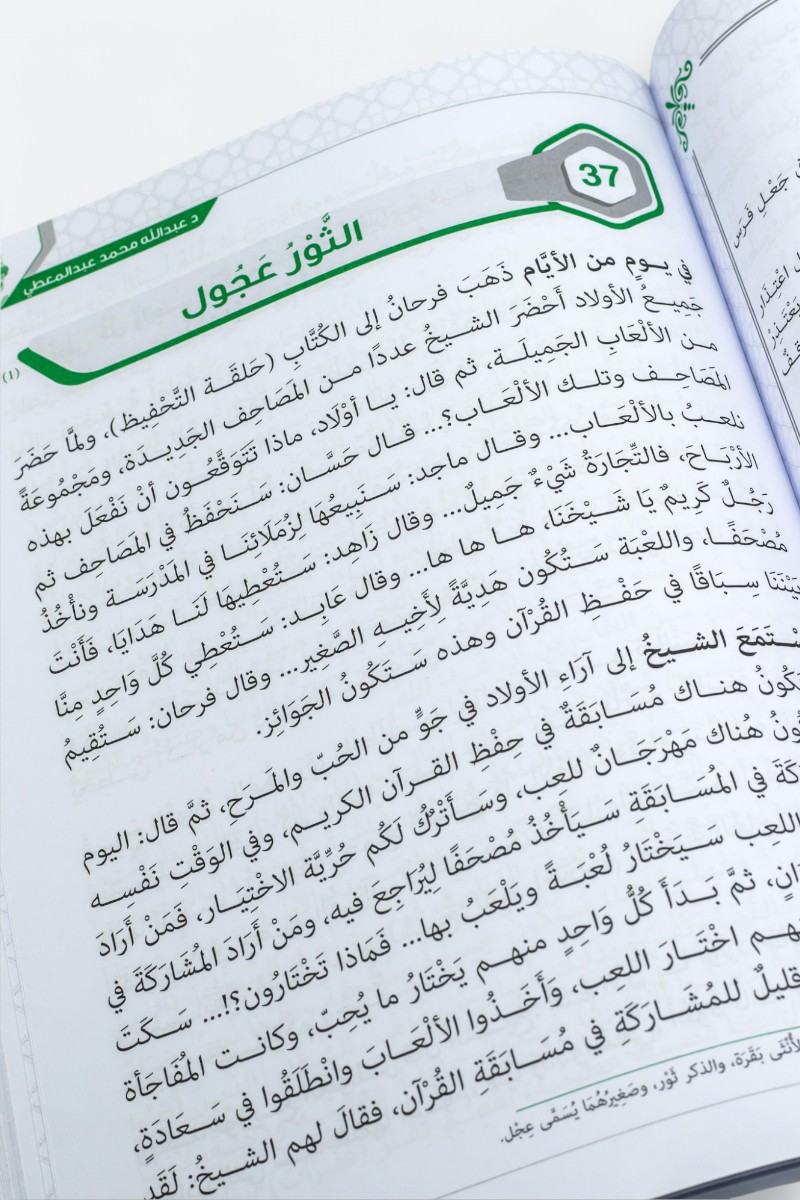 37
د عبدالله محمد عبدالمعطي
الثَّوْرُ عَجُول
(1)
في يـومٍ من الأيَّام ذَهَبَ فرحانُ إلى الكُتَّابِ (حَلقَـة التَّحْفِيظ)، ولمَّا حَضَرَ
جَمِيـعُ الأولاد أَحْضَرَ الشيـخُ عددًا مـن المَصَاحِف الجَدِيـدَة، ومَجْمُوعَةً
مـن الألْعَابِ الجَمِيلَـة، ثم قال: يـا أوْلَاد، ماذا تَتَوَقَّعُـون أنْ نَفْعَلَ بهذه
المَصَاحِـف وتلـك الألْعَـاب؟... قـال حَسَّـان: سَـنَحْفَظُ في المَصَاحِف ثم
نلعـبُ بالألْعَـاب... وقـال ماجد: سَـنَبِيعُهَا لِزُمَلَائِنَـا في المَدْرَسَـة ونأْخُذُ
الأرْبَـاحَ، فالتِّجَارَةُ شَيْءٌ جَمِيلٌ... وقال زَاهِد: سَـتُعْطِيهَا لَنَـا هَدَايَا، فَأَنْتَ
رَجُـلٌ كَرِيمٌ يَا شَـيْخَنَا، هـا ها ها... وقال عَابِـد: سَـتُعْطِي كُلَّ وَاحِدٍ مِنَّا
مُصْحَفًـا، واللعْبَة سَـتُكُون هَدِيَّةً لِأَخِيـهِ الصَّغِير... وقال فرحان: سَـتُقِيمُ
بَيْنَنَا سِـبَاقًا في حَفْـظِ القُرْآن وهذه سَـتَكُونُ الجَوَائِز.
الشيـخُ إلى آرَاءِ الأولاد في جَوٍّ من الحُبّ والمَـرَحِ، ثمَّ قال: اليوم
هنـاك مُسَـابَقَةٌ في حِفْظِ القـرآن الكريـم، وفي الوَقْتِ نَفْسِـه
هُناك مَهْرَجَـانٌ للعِب، وسَـأَتْرُكُ لَكُم حُرِّيَّة الاخْتِيَـار، فَمَنْ أَرَادَ
في المُسَـابَقَةِ سَـيَأْخُذُ مُصْحَفًا لِيُرَاجِعَ فيه، ومَنْ أَرَادَ المُشَارَكَةَ في
اللعِب سَـيَخْتَارُ لُعْبَـةً ويَلْعَبُ بها... فَمَاذا تَخْتَارُون؟!... سَـكَتَ
ثمَّ بَـدَأَ كُلُّ وَاحِدٍ منهـم يَخْتَارُ ما يُحِبّ، وكانـت المُفَاجَأة
اخْتَـارَ اللعِب، وَأَخَـذُوا الألْعَـابَ وانْطَلَقُوا في سَـعَادَةٍ،
قليلٌ للمُشَـارَكَةِ في مُسَـابَقَةِ القُرْآن، فقالَ لهم الشيـخُ: لَقَد
الأُنْثَى بَقَرَة، والذكر ثَوْر، وصَغِيرُهُمَا يُسَمَّى عِجْل.
جَعْلِ فَرَس
اعْتِذَار